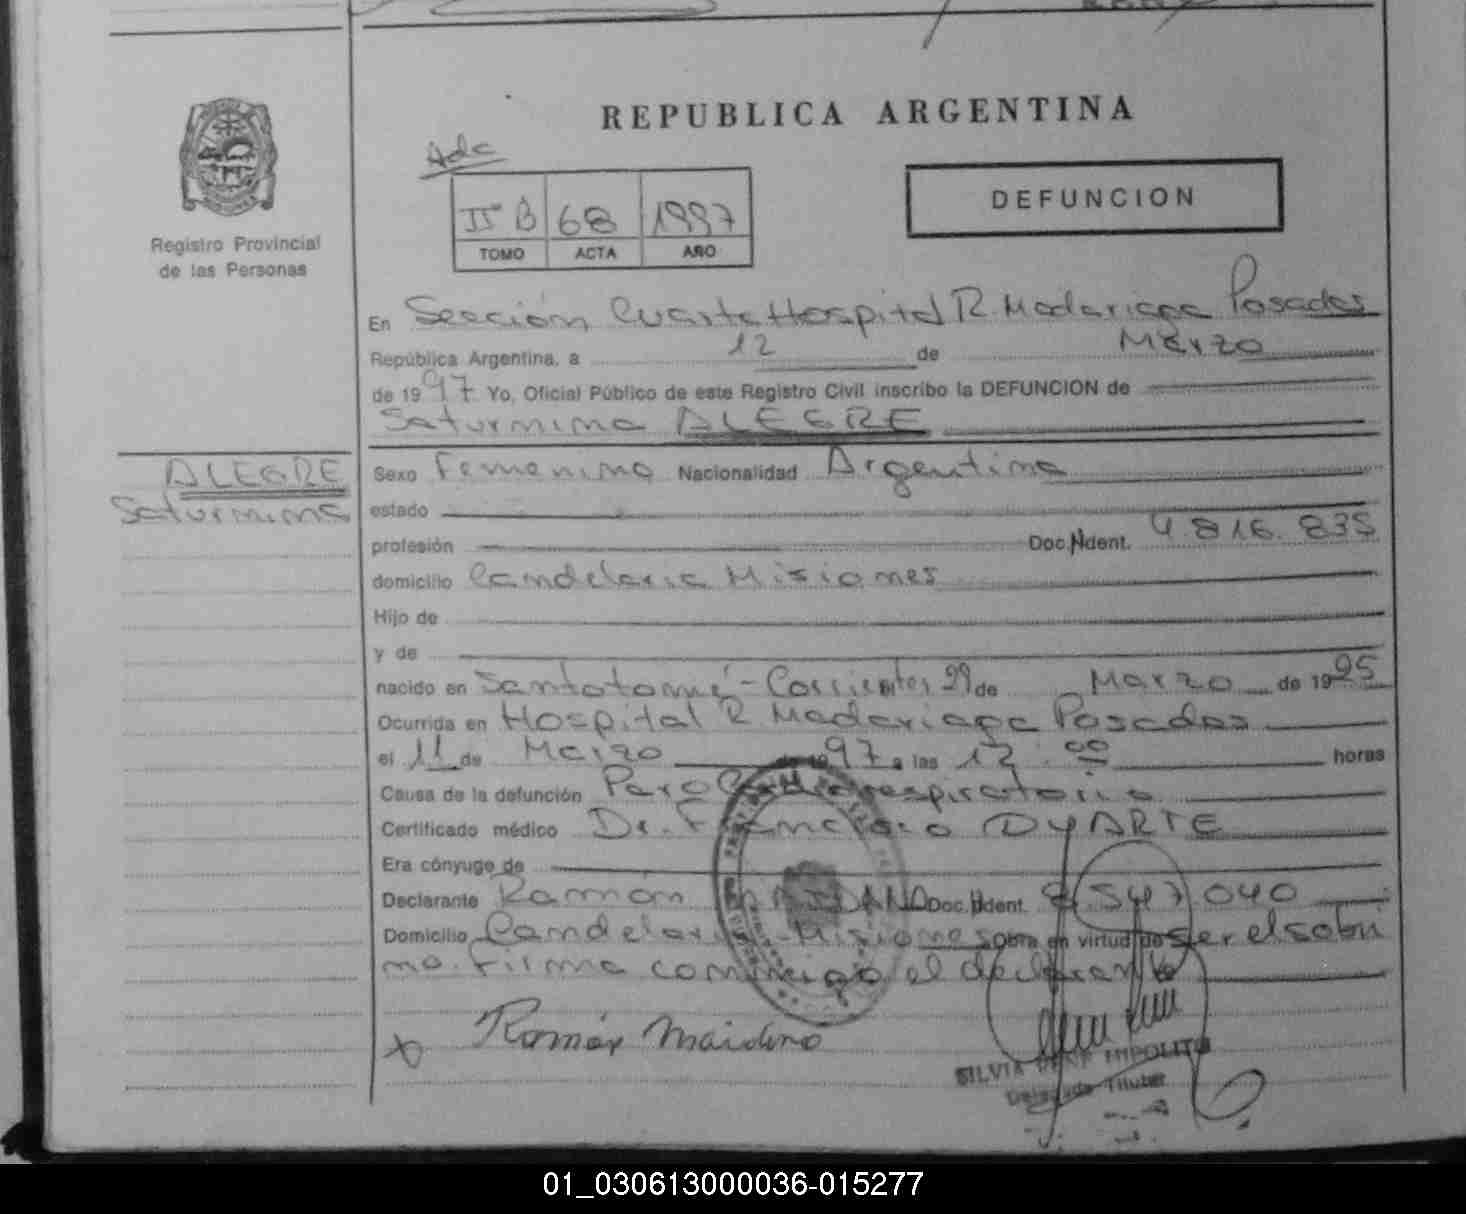 REPUBLICA ARGENTINA
Registro Provincial
de las Personas
Ada
IIº B 68 1997
TOMO ACTA AÑO
DEFUNCION
En Sección Cuarta Hospital R. Madariaga Posadas
República Argentina, a 12 de Marzo
de 1997 Yo, Oficial Público de este Registro Civil inscribo la DEFUNCION de
Saturnina ALEGRE
ALEGRE
Saturnina
Sexo Femenino Nacionalidad Argentina
estado
profesión Doc. Ident. 4.816.835
domicilio Candelaria Misiones
Hijo de
y de
nacido en Santo tomé - Corrientes 29 de Marzo de 1925
Ocurrida en Hospital R Madariaga Posadas
el 11 de Marzo de 1997 a las 12:00 horas
Causa de la defunción Paro Cardiorespiratorio
Certificado médico Dr. Francisco DUARTE
Era cónyuge de
Declarante Ramón Doc. Ident. 547.040
Domicilio Candelaria - Misiones obra en virtud de ser el sobri
no. Firma conmigo el declarante
x Ramón Maidana
SILVIA IMPOLITO
Delegada Titular
01_030613000036-015277